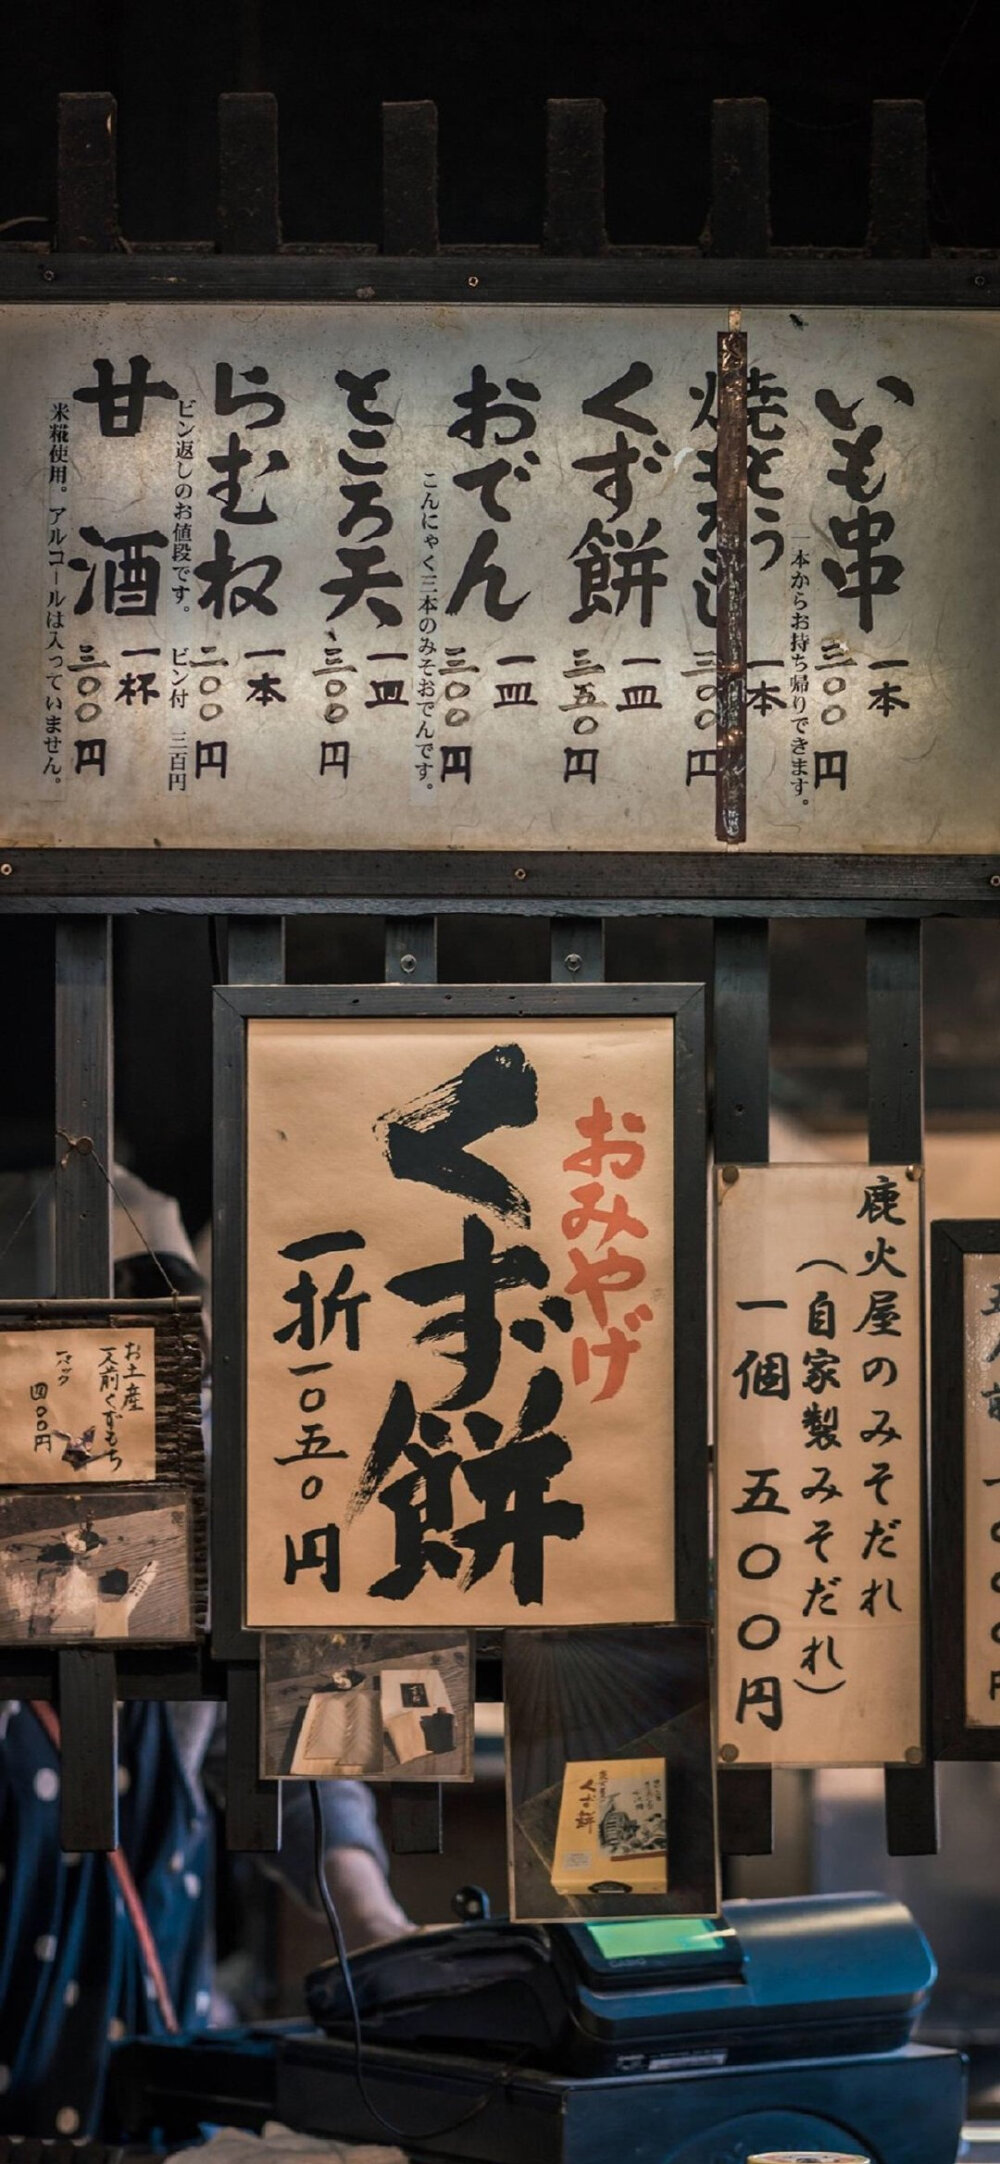 いも串
一本
三〇〇円
一本からお持ち帰りできます。
一本
三〇〇円
くず餅
一皿
三五〇円
おでん
一皿
三〇〇円
こんにゃく三本のみそおでんです。
ところ天
一皿
三〇〇円
らむね
一本
二〇〇円
ビン返しのお値段です。 ビン付 三百円
甘酒
一杯
三〇〇円
米糀使用。アルコールは入っていません。
おみやげ
くず餅
一折一〇五〇円
鹿火屋のみそだれ
(自家製みそだれ)
一個 五〇〇円
お土産
一人前くずもち
一パック
四〇〇円
くず餅
CASIO